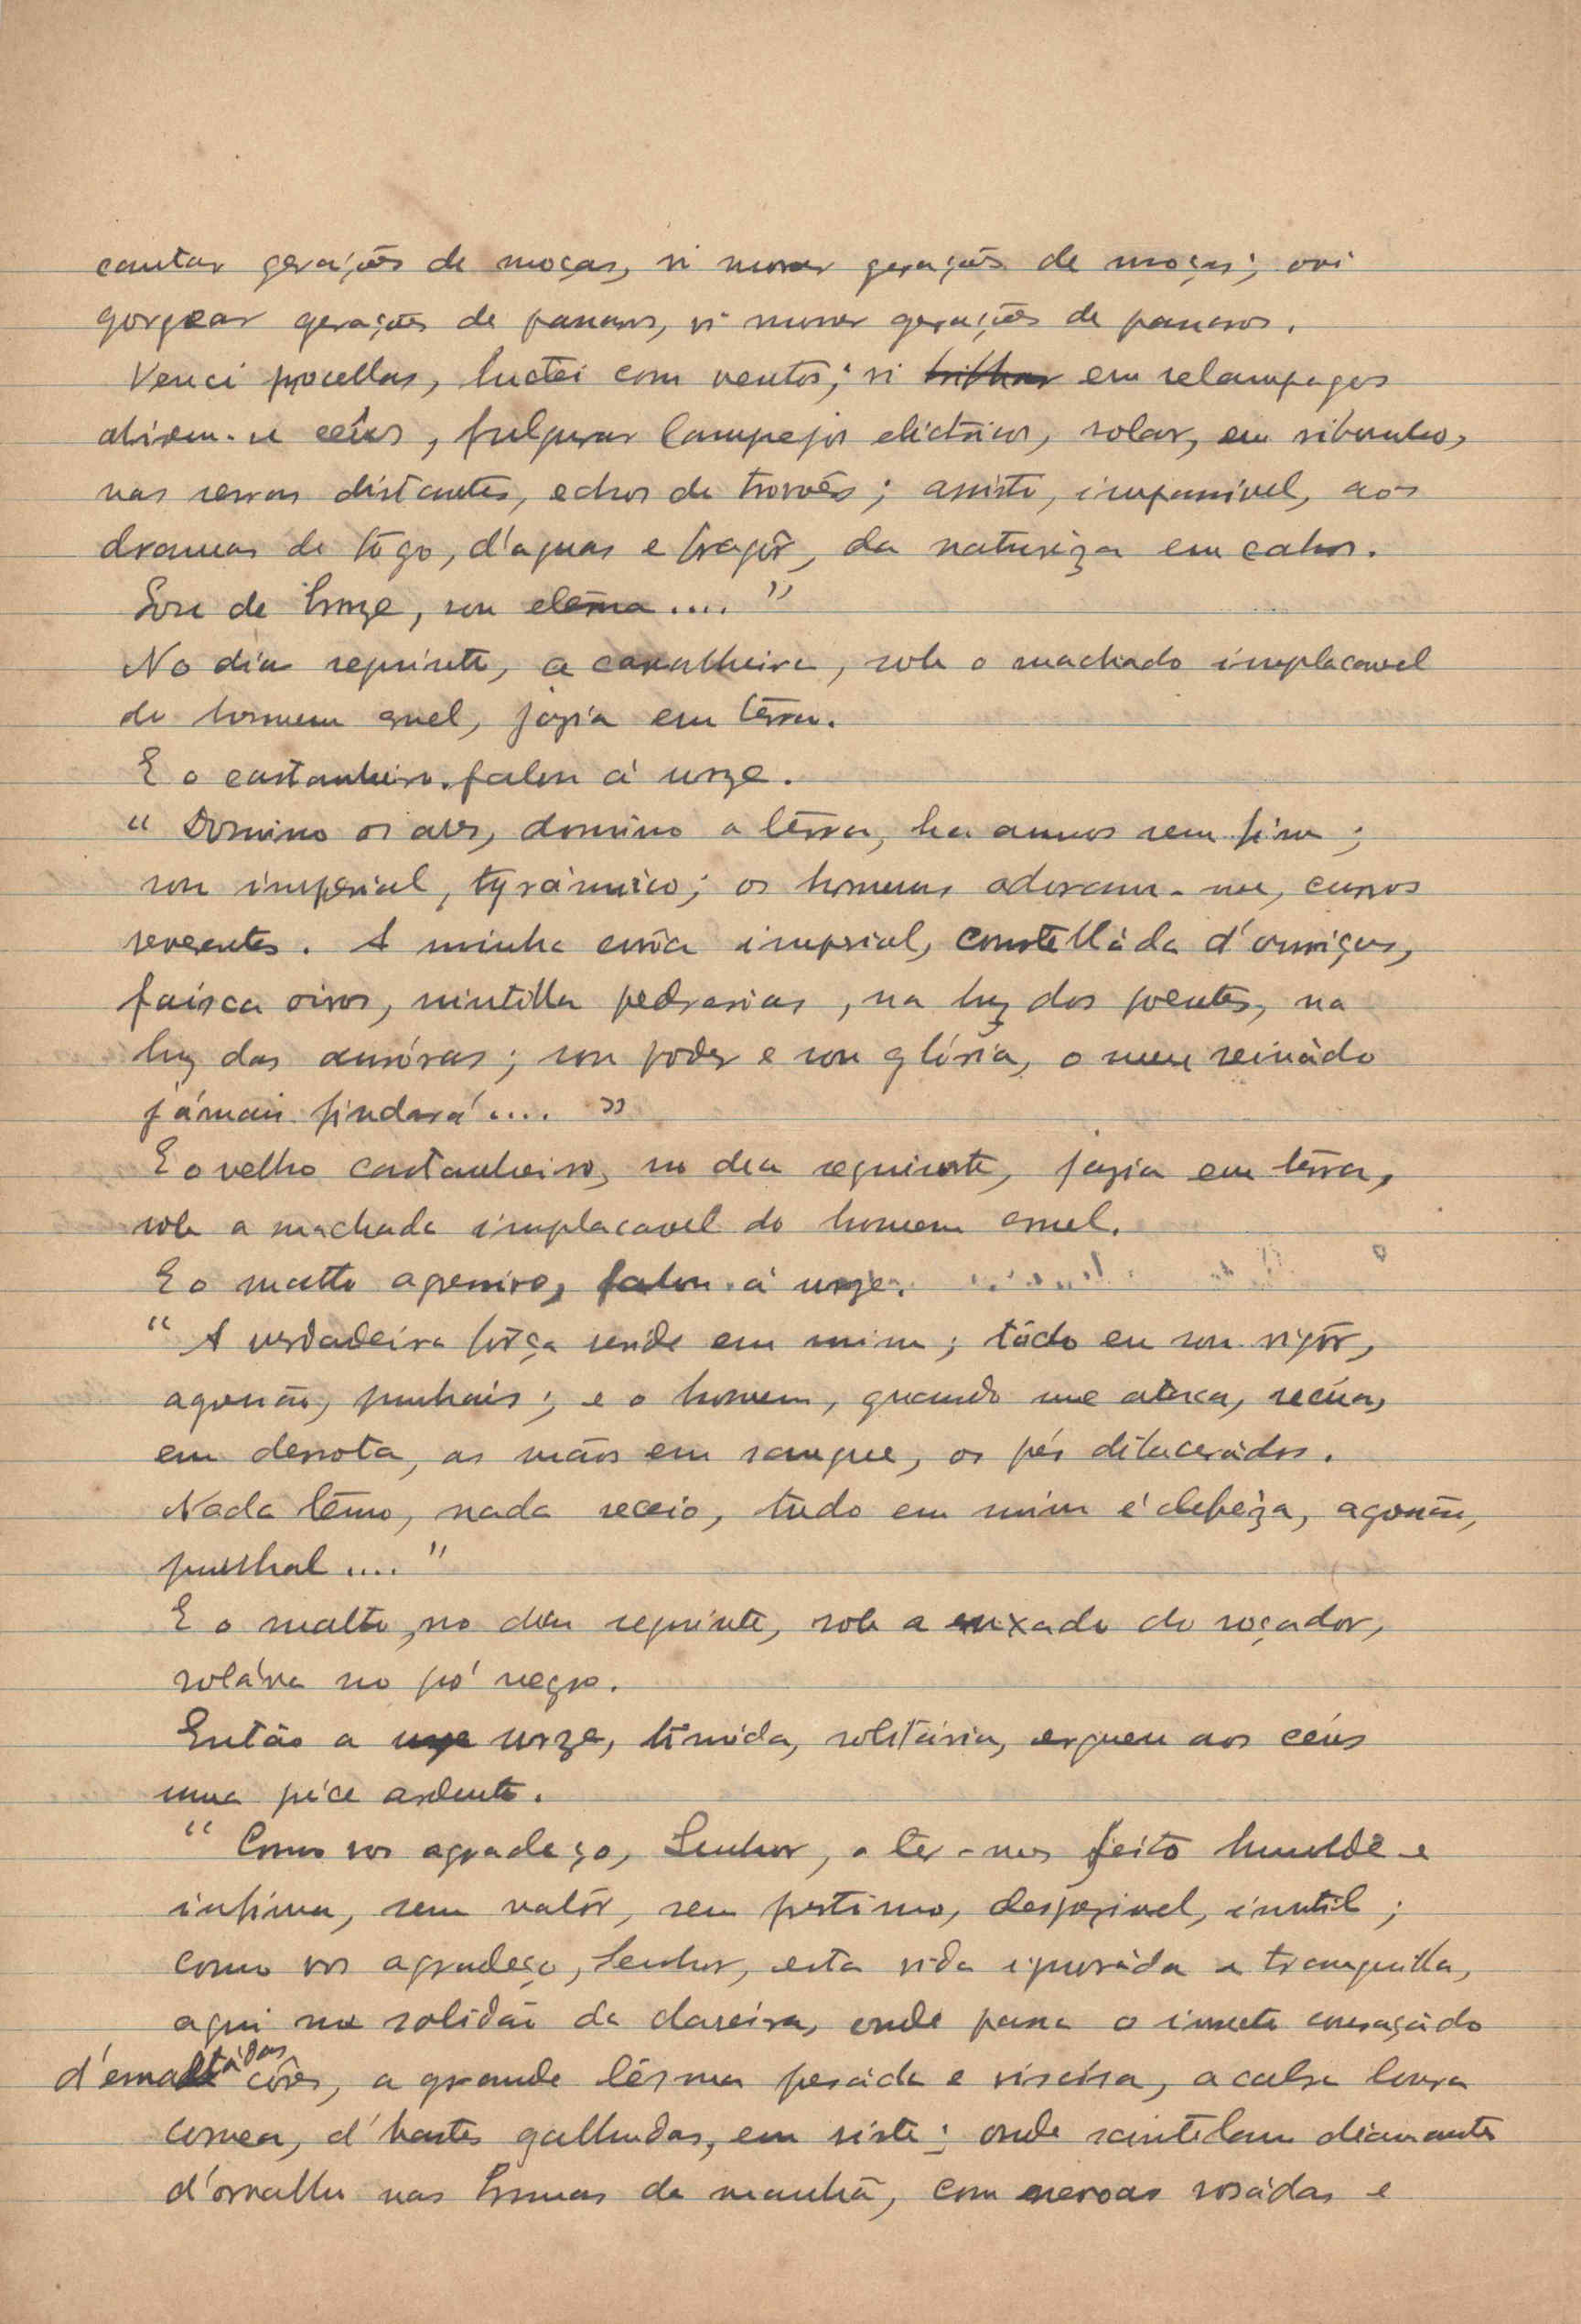 cantar gerações de moças, vi morrer gerações de moças; ouvi
gorgear gerações de passaros, vi morrer gerações de passaros.
Venci procellas, luctei com ventos; vi em relampagos
abirem-se céus, fulgurar lampejos eléctricos, rolar, em ribombo,
nas serras distantes, echos de trovões; assisto, impassivel, aos
dramas de fôgo, d'aguas e fragôr, da naturêza em cahos.
Sou de bronze, sou etérna...."
No dia seguinte, a carvalheira, sob o machado implacavel
do homem cruel, jazia em térra.
E o castanheiro falou á urze.
" Domino os ares, domino a térra, ha annos sem fim;
sou imperial, tyrânnico; os homens adoram-me, curvos
reverentes. A minha corôa imperial, constelláda d'ouriços,
faísca oiros, scintilla pedrarias, na luz dos poentes, na
luz das auróras; sou poder e sou glória, o meu reinádo
jámais findará.... "
E o velho castanheiro, no dia seguinte, jazia em térra,
sob a machada implacavel do homem cruel.
E o matto aggressivo, falou á urze.
" A verdadeira fôrça reside em mim; tôdo eu sou vigôr,
agressão, punhais; e o homem, quando me ataca, recúa,
em derrota, as mãos em sangue, os pés dilacerádos.
Nada têmo, nada receio, tudo em mim é defêza, agressão,
punhal.... "
E o matto, no dia seguinte, sob a enxada do roçador,
roláva no pó negro.
Então a urze, tímida, solitária, ergueu aos céus
uma préce ardente.
" Como vos agradeço, Senhor, o ter-me feito humilde e
infima, sem valôr, sem prestimo, desprezivel, inutil;
como vos agradeço, Senhor, esta vida ignoráda e tranquilla,
aqui na solidão da clareira, onde passa o insecto couraçádo
d'esmaltádas côres, a grande lésma pesáda e viscósa, a cabra loura
cornea, d'hastes galhudas, em riste; onde scintilam diamantes
d'orvalho nas brumas da manhã, com nevoas rosádas e